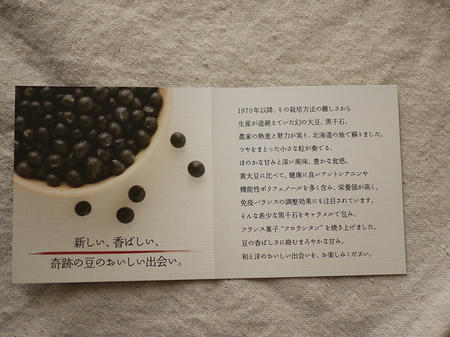 新しい、香ばしい、
奇跡の豆のおいしい出会い。
1970年以降、その栽培方法の難しさから
生産が途絶えていた幻の大豆、黒千石。
農家の熱意と努力が実り、北海道の地で蘇りました。
つやをまとった小さな粒が奏でる、
ほのかな甘みと深い風味、豊かな食感。
黄大豆に比べて、健康に良いアントシアニンや
機能性ポリフェノールを多く含み、栄養価が高く、
免疫バランスの調整効果にも注目されています。
そんな希少な黒千石をキャラメルで包み、
フランス菓子“フロランタン”を焼き上げました。
豆の香ばしさに絡むまろやかな甘み。
和と洋のおいしい出会いを、お楽しみください。